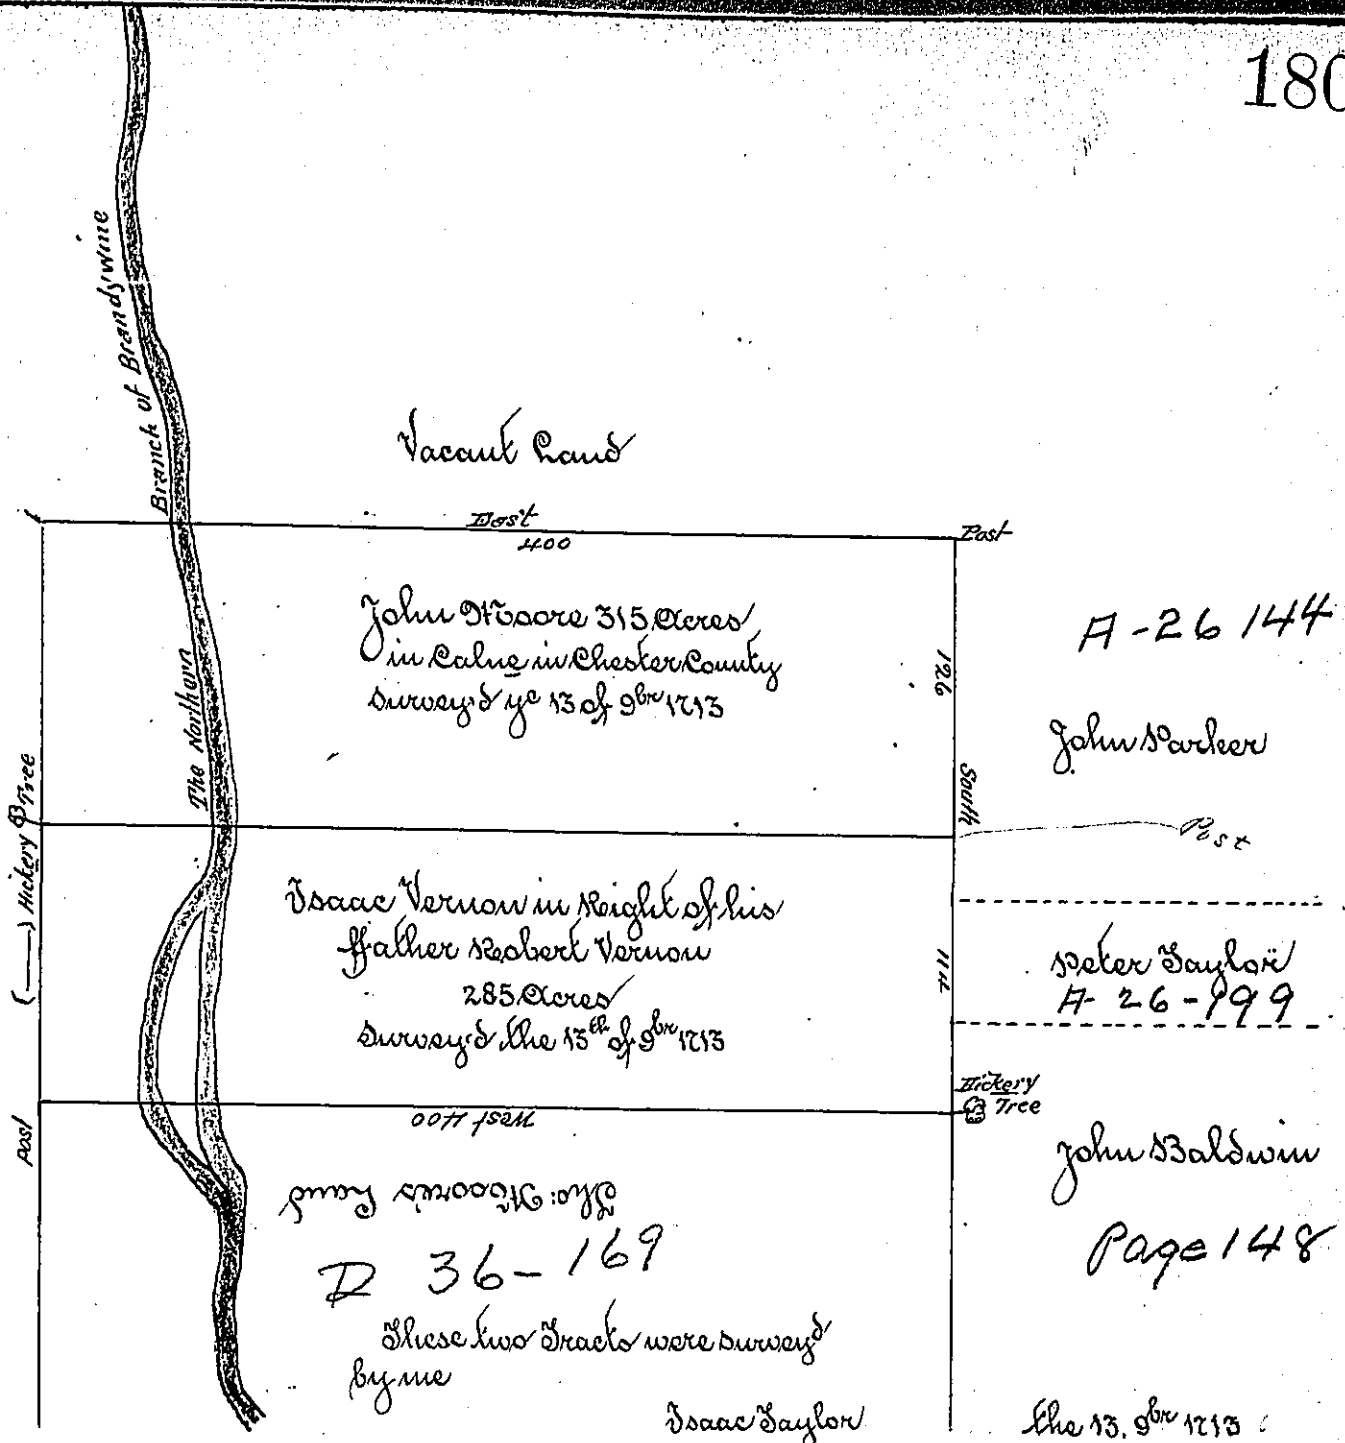 180
Branch of Brandywine
Vacant Land
East
400
Post
John Moore 315 Acres
in Calne in Chester County
Survey'd ye 13 of 9br 1713
126
South
A-26 144
The Northern
John Parker
Post
(—) Hickery Tree
Isaac Vernon in Right of his
ffather Robert Vernon
285 Acres
Survey'd the 13th of 9br 1713
114
Peter Taylor
A-26-199
Hickery
Tree
West 400
Post
John Baldwin
Tho: Moore's Land
D 36-169
Page 148
These two Tracts were survey'd
by me
Isaac Taylor
the 13. 9br 1713